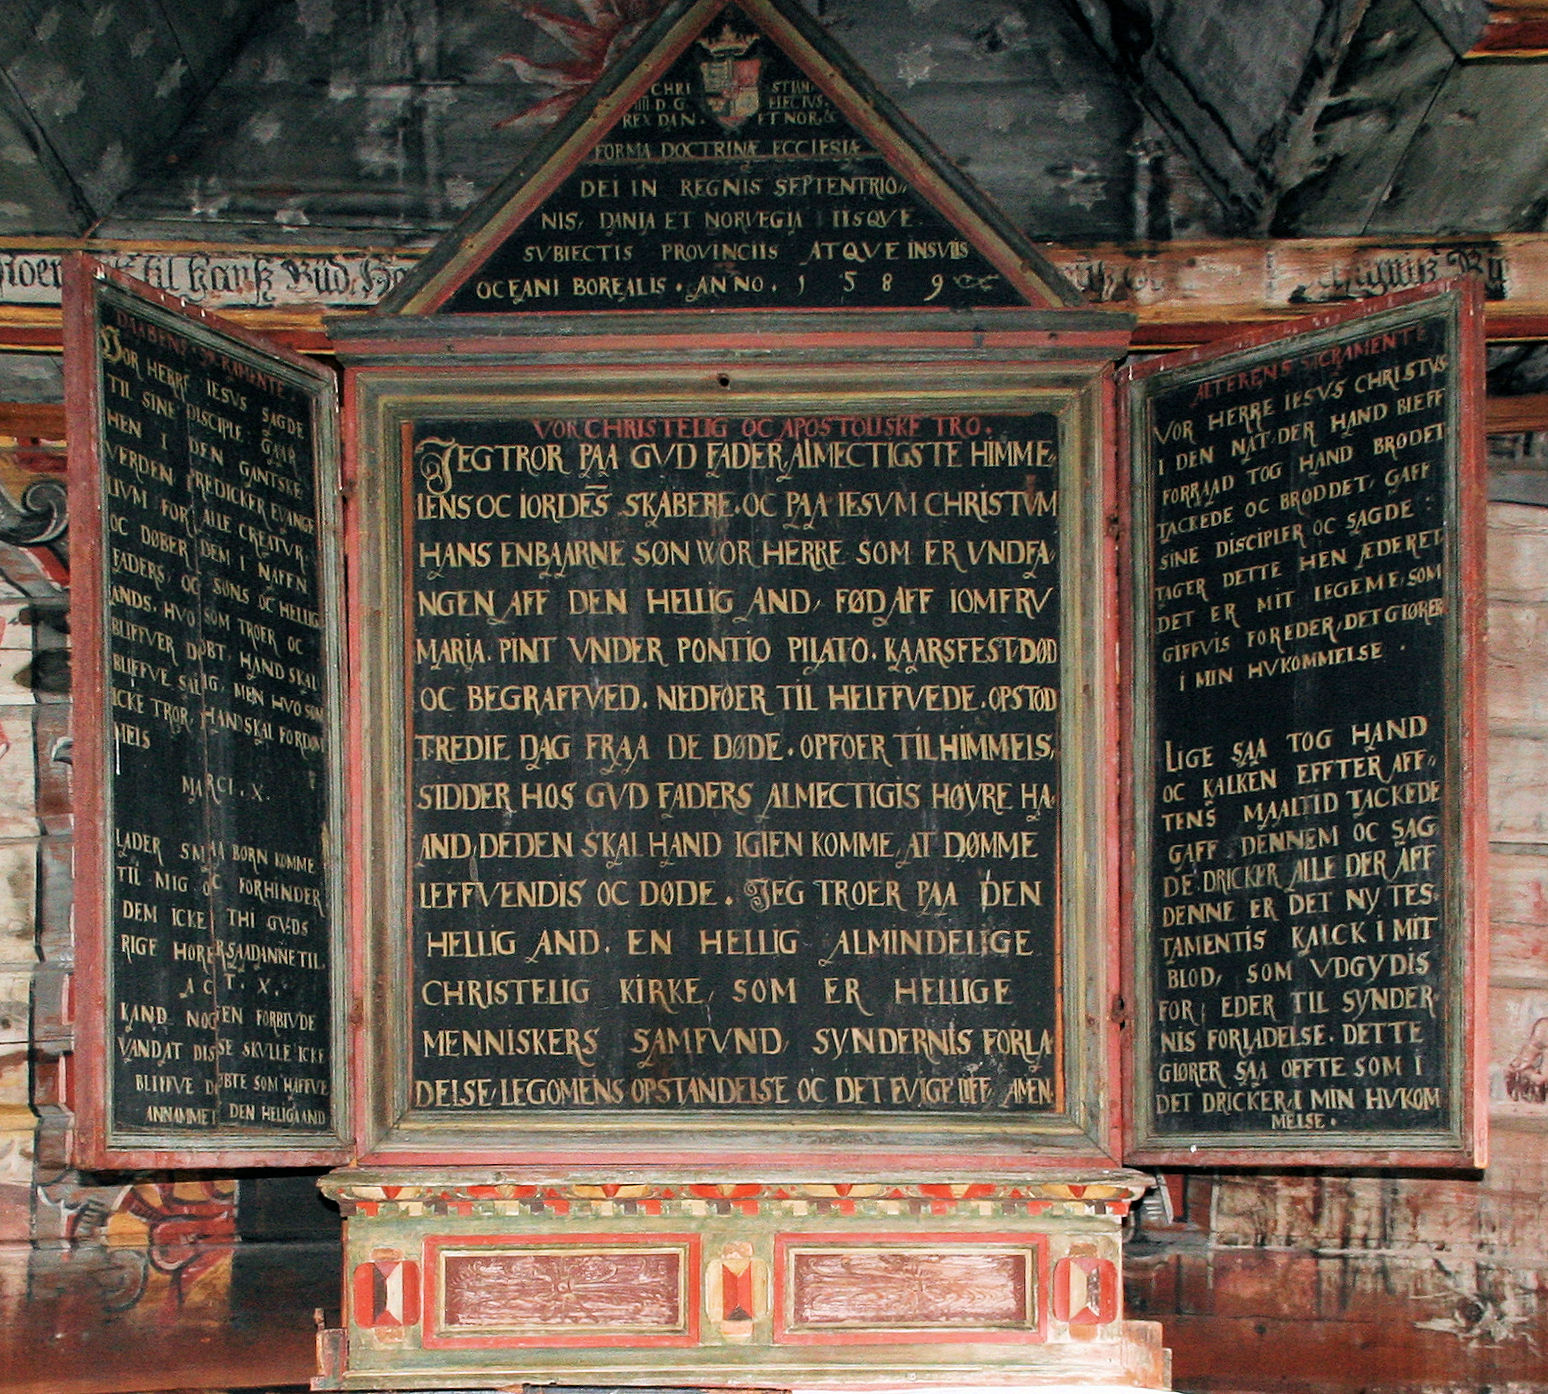 CHRI STIAN
IIII D G ELECTVS
REX DAN. ET NOR.&
FORMA DOCTRINÆ ECCLESIÆ
DEI IN REGNIS SEPTENTRIO-
NIS, DANIA ET NORVEGIA IISQVE
SVBIECTIS PROVINCIIS ATQVE INSVLIS
OCEANI BOREALIS. ANNO. 1589
DAABENS SACRAMENTE
VOR HERRE IESVS SAGDE
TIL SINE DISCIPLE, GAAR
HEN I DEN GANTSKE
VERDEN PREDICKER EVANGE
LIVM FOR ALLE CREATVR.
OC DØBER DEM I NAFFN
FADERS, OG SØNS OC HELLIG
ANDS. HVO SOM TROER OC
BLIFFVER DØBT HAND SKAL
BLIFFVE SALIG, MEN HVO SOM
ICKE TROR, HAND SKAL FORDØM
MELS
MARCI. X.
LADER SMAA BØRN KOMME
TIL MIG OC FORHINDER
DEM ICKE THI GVDS
RIGE HØRER SAADANNE TIL
ACT. X.
KAND NOGEN FORBIVDE
VANDAT DISSE SKVLLE ICKE
BLIFFVE DØBTE SOM HAFFVE
ANNAMMET DEN HELIGAAND
VOR CHRISTELIG OC APOSTOLISKE TRO.
JEGTROR PAA GVD FADER ALMECTIGSTE HIMME-
LENS OC IORDES SKABERE. OC PAA IESVM CHRISTVM
HANS ENBAARNE SØN WOR HERRE SOM ER VNDFA-
NGEN AFF DEN HELLIG AND, FØD AFF IOMFRV
MARIA. PINT VNDER PONTIO PILATO. KAARSFEST DØD
OC BEGRAFFVED. NEDFØER TIL HELFFVEDE. OPSTOD
TREDIE DAG FRAA DE DØDE. OPFOER TIL HIMMELS,
SIDDER HOS GVD FADERS ALMECTIGIS HØVRE HA-
AND, DEDEN SKAL HAND IGIEN KOMME AT DØMME
LEFFVENDIS OC DØDE. JEG TROER PAA DEN
HELLIG AND. EN HELLIG ALMINDELIGE
CHRISTELIG KIRKE, SOM ER HELLIGE
MENNISKERS SAMFVND, SYNDERNIS FORLA-
DELSE, LEGOMENS OPSTANDELSE OC DET EVIGE LIFF AMEN.
ALTERENS SACRAMENTE
VOR HERRE IESVS CHRISTVS
I DEN NAT DER HAND BLEFF
FORRAAD TOG HAND BRØDET
TACKEDE OC BRØDDET, GAFF
SINE DISCIPLER OC SAGDE:
TAGER DETTE HEN ÆDERET
DET ER MIT LEGEME: SOM
GIFFVIS FOR EDER, DET GIØRER
I MIN HVKOMMELSE.
LIGE SAA TOG HAND
OC KALKEN EFFTER AFF-
TENS MAALTID TACKEDE
GAFF DENNEM OC SAG
DE. DRICKER ALLE DER AFF
DENNE ER DET NY TES-
TAMENTIS KALCK I MIT
BLOD, SOM VDGYDIS
FOR EDER TIL SYNDER-
NIS FORLADELSE. DETTE
GIØRER SAA OFFTE SOM I
DET DRICKER I MIN HVKOM
MELSE.